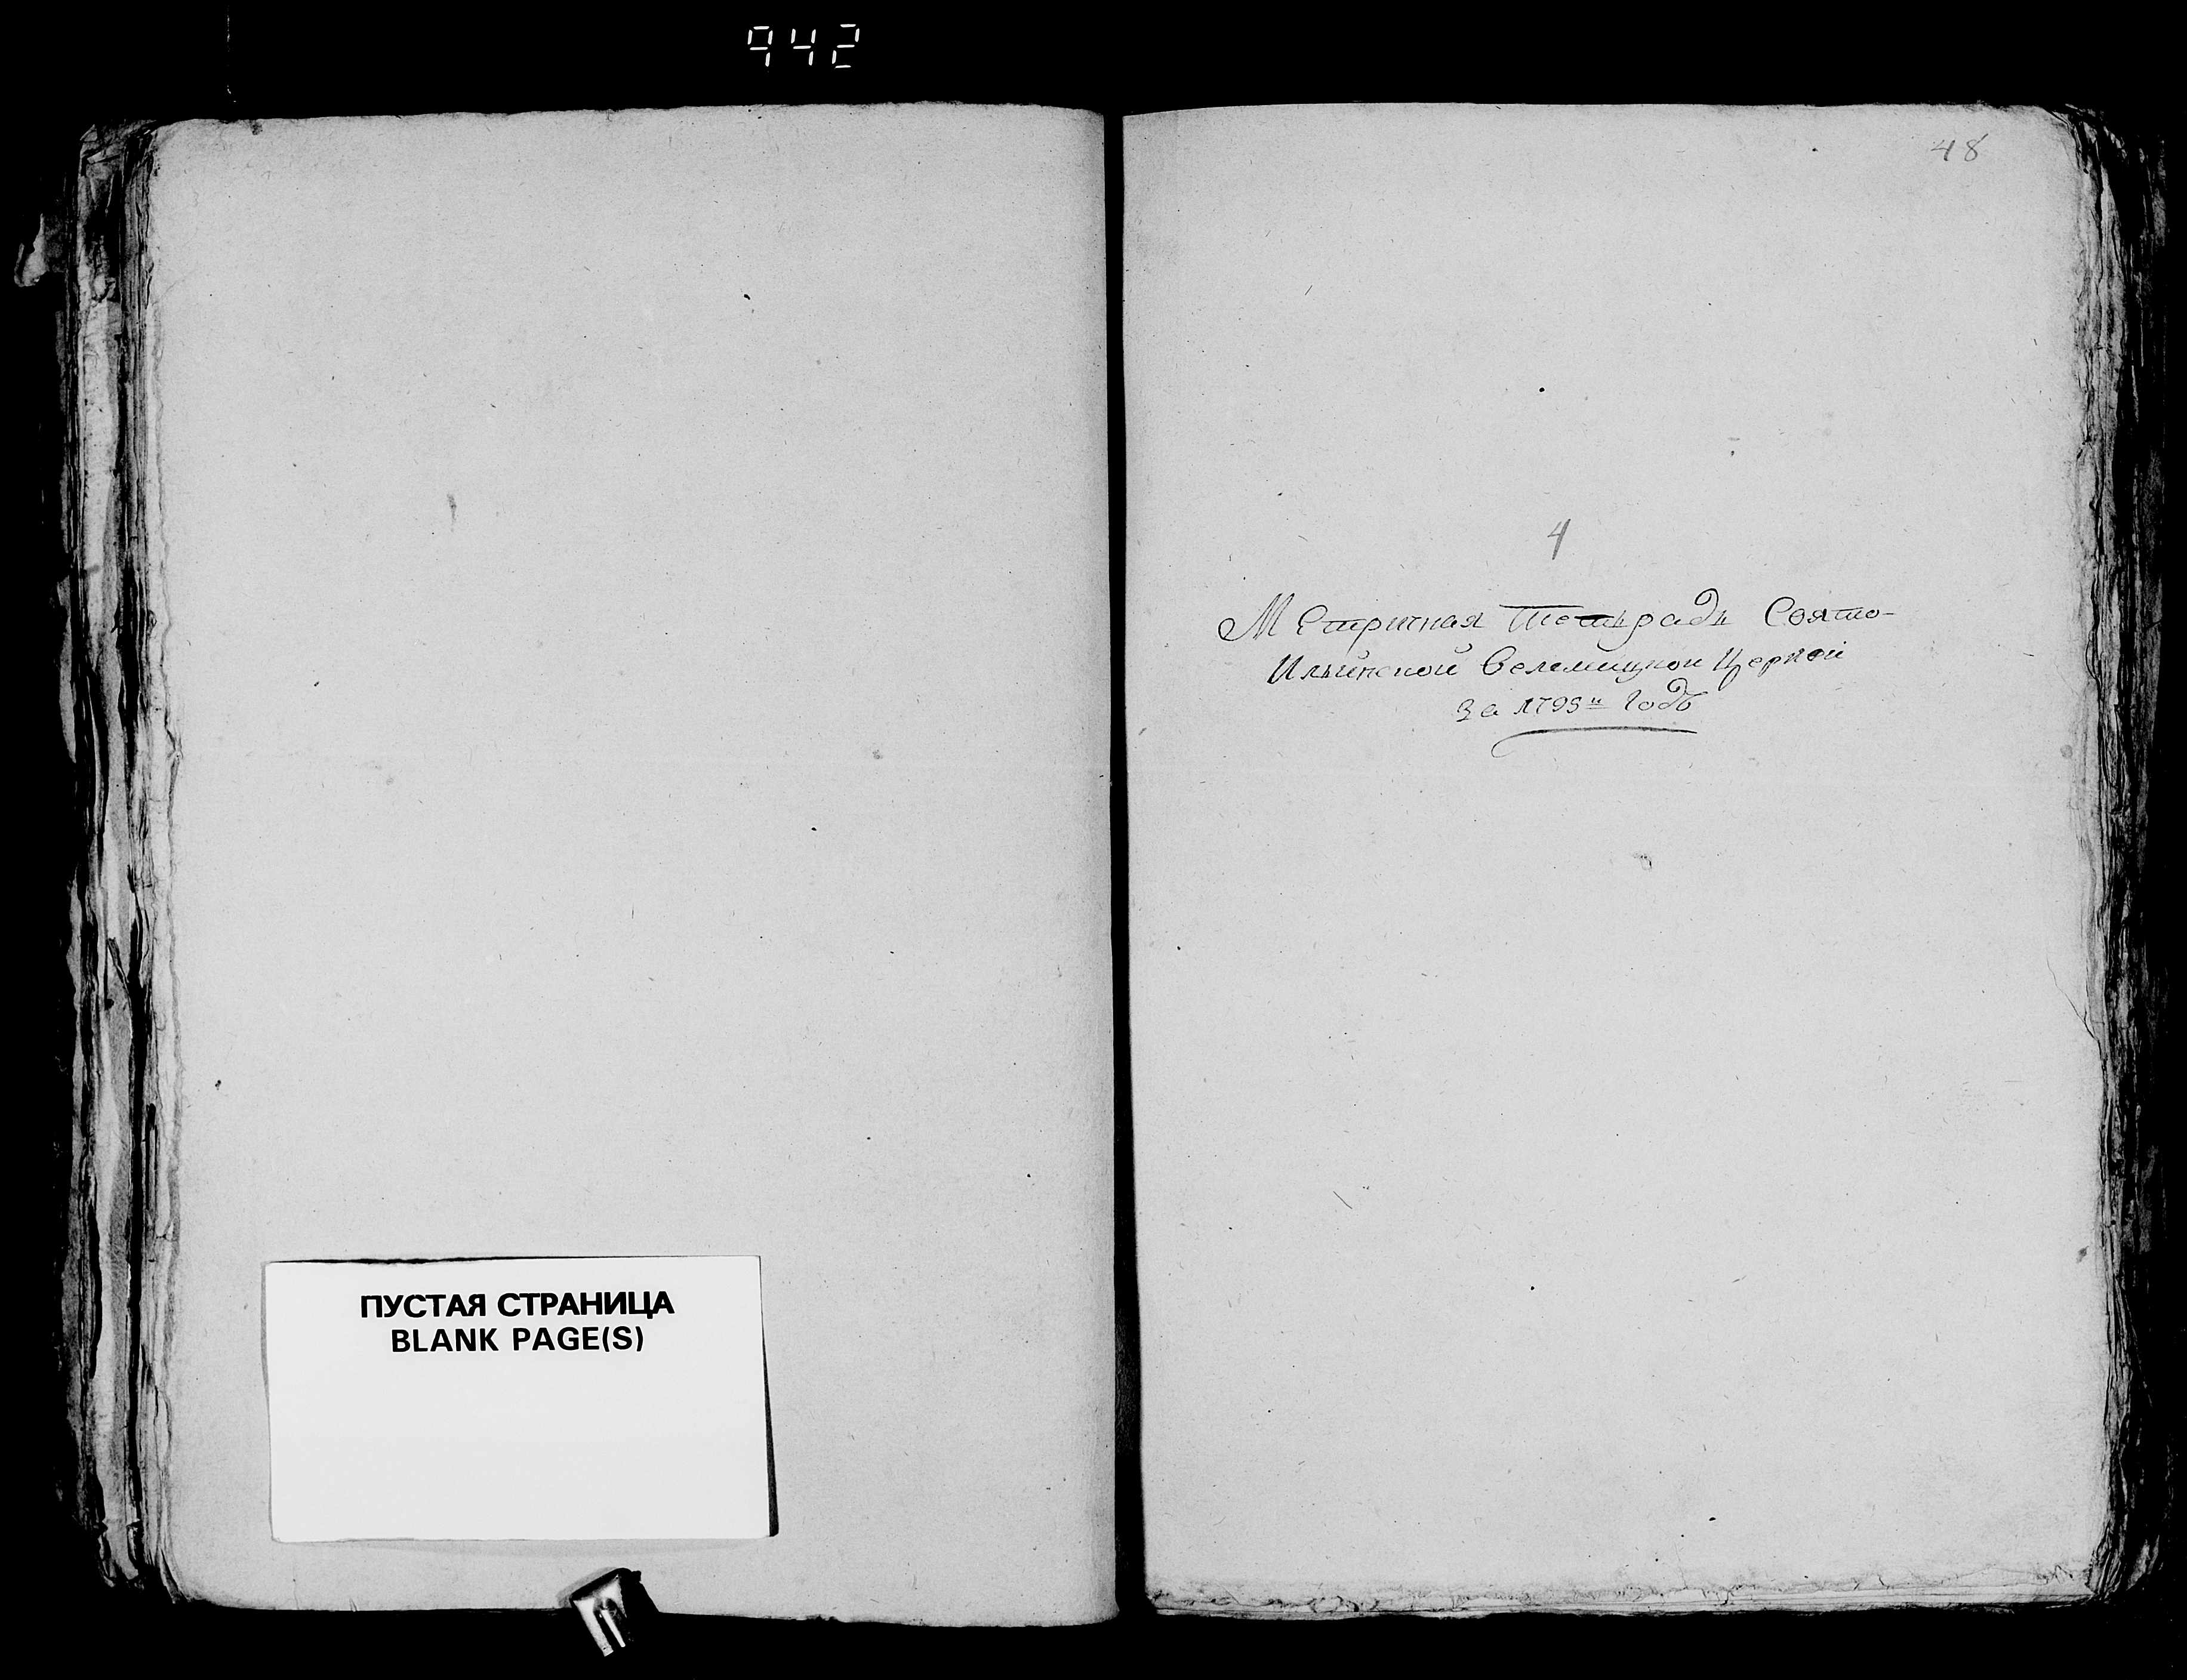 942
ПУСТАЯ СТРАНИЦА
BLANK PAGE(S)
48
4
Метричная Тетрадь Свято-
Ильинской Велемицкой Церкви
За 1795й Годъ